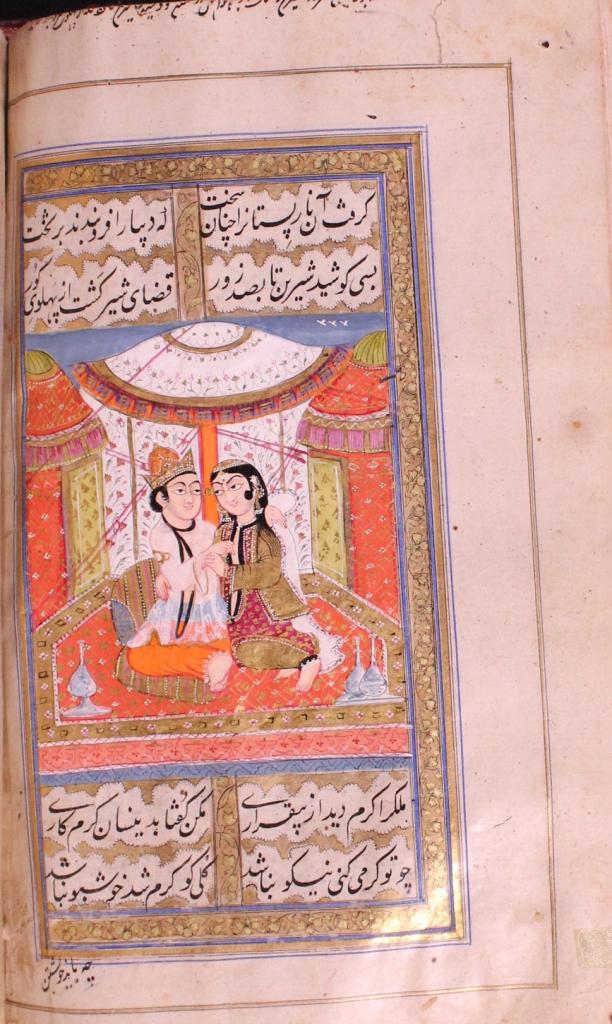 گرفت آن نارپستانرا چنان سخت که دیبا را فروبندند بر تخت
بسی کوشید شیرین تا بصد زور قضای شیر گشت از پهلوی گور
ملک را گرم دید از بیقراری مکن گفتا بدینسان گرم کاری
چو تو گرمی کنی نیکو نباشد گلی کو گرم شد خوشبو نباشد
چه باید خویشتن